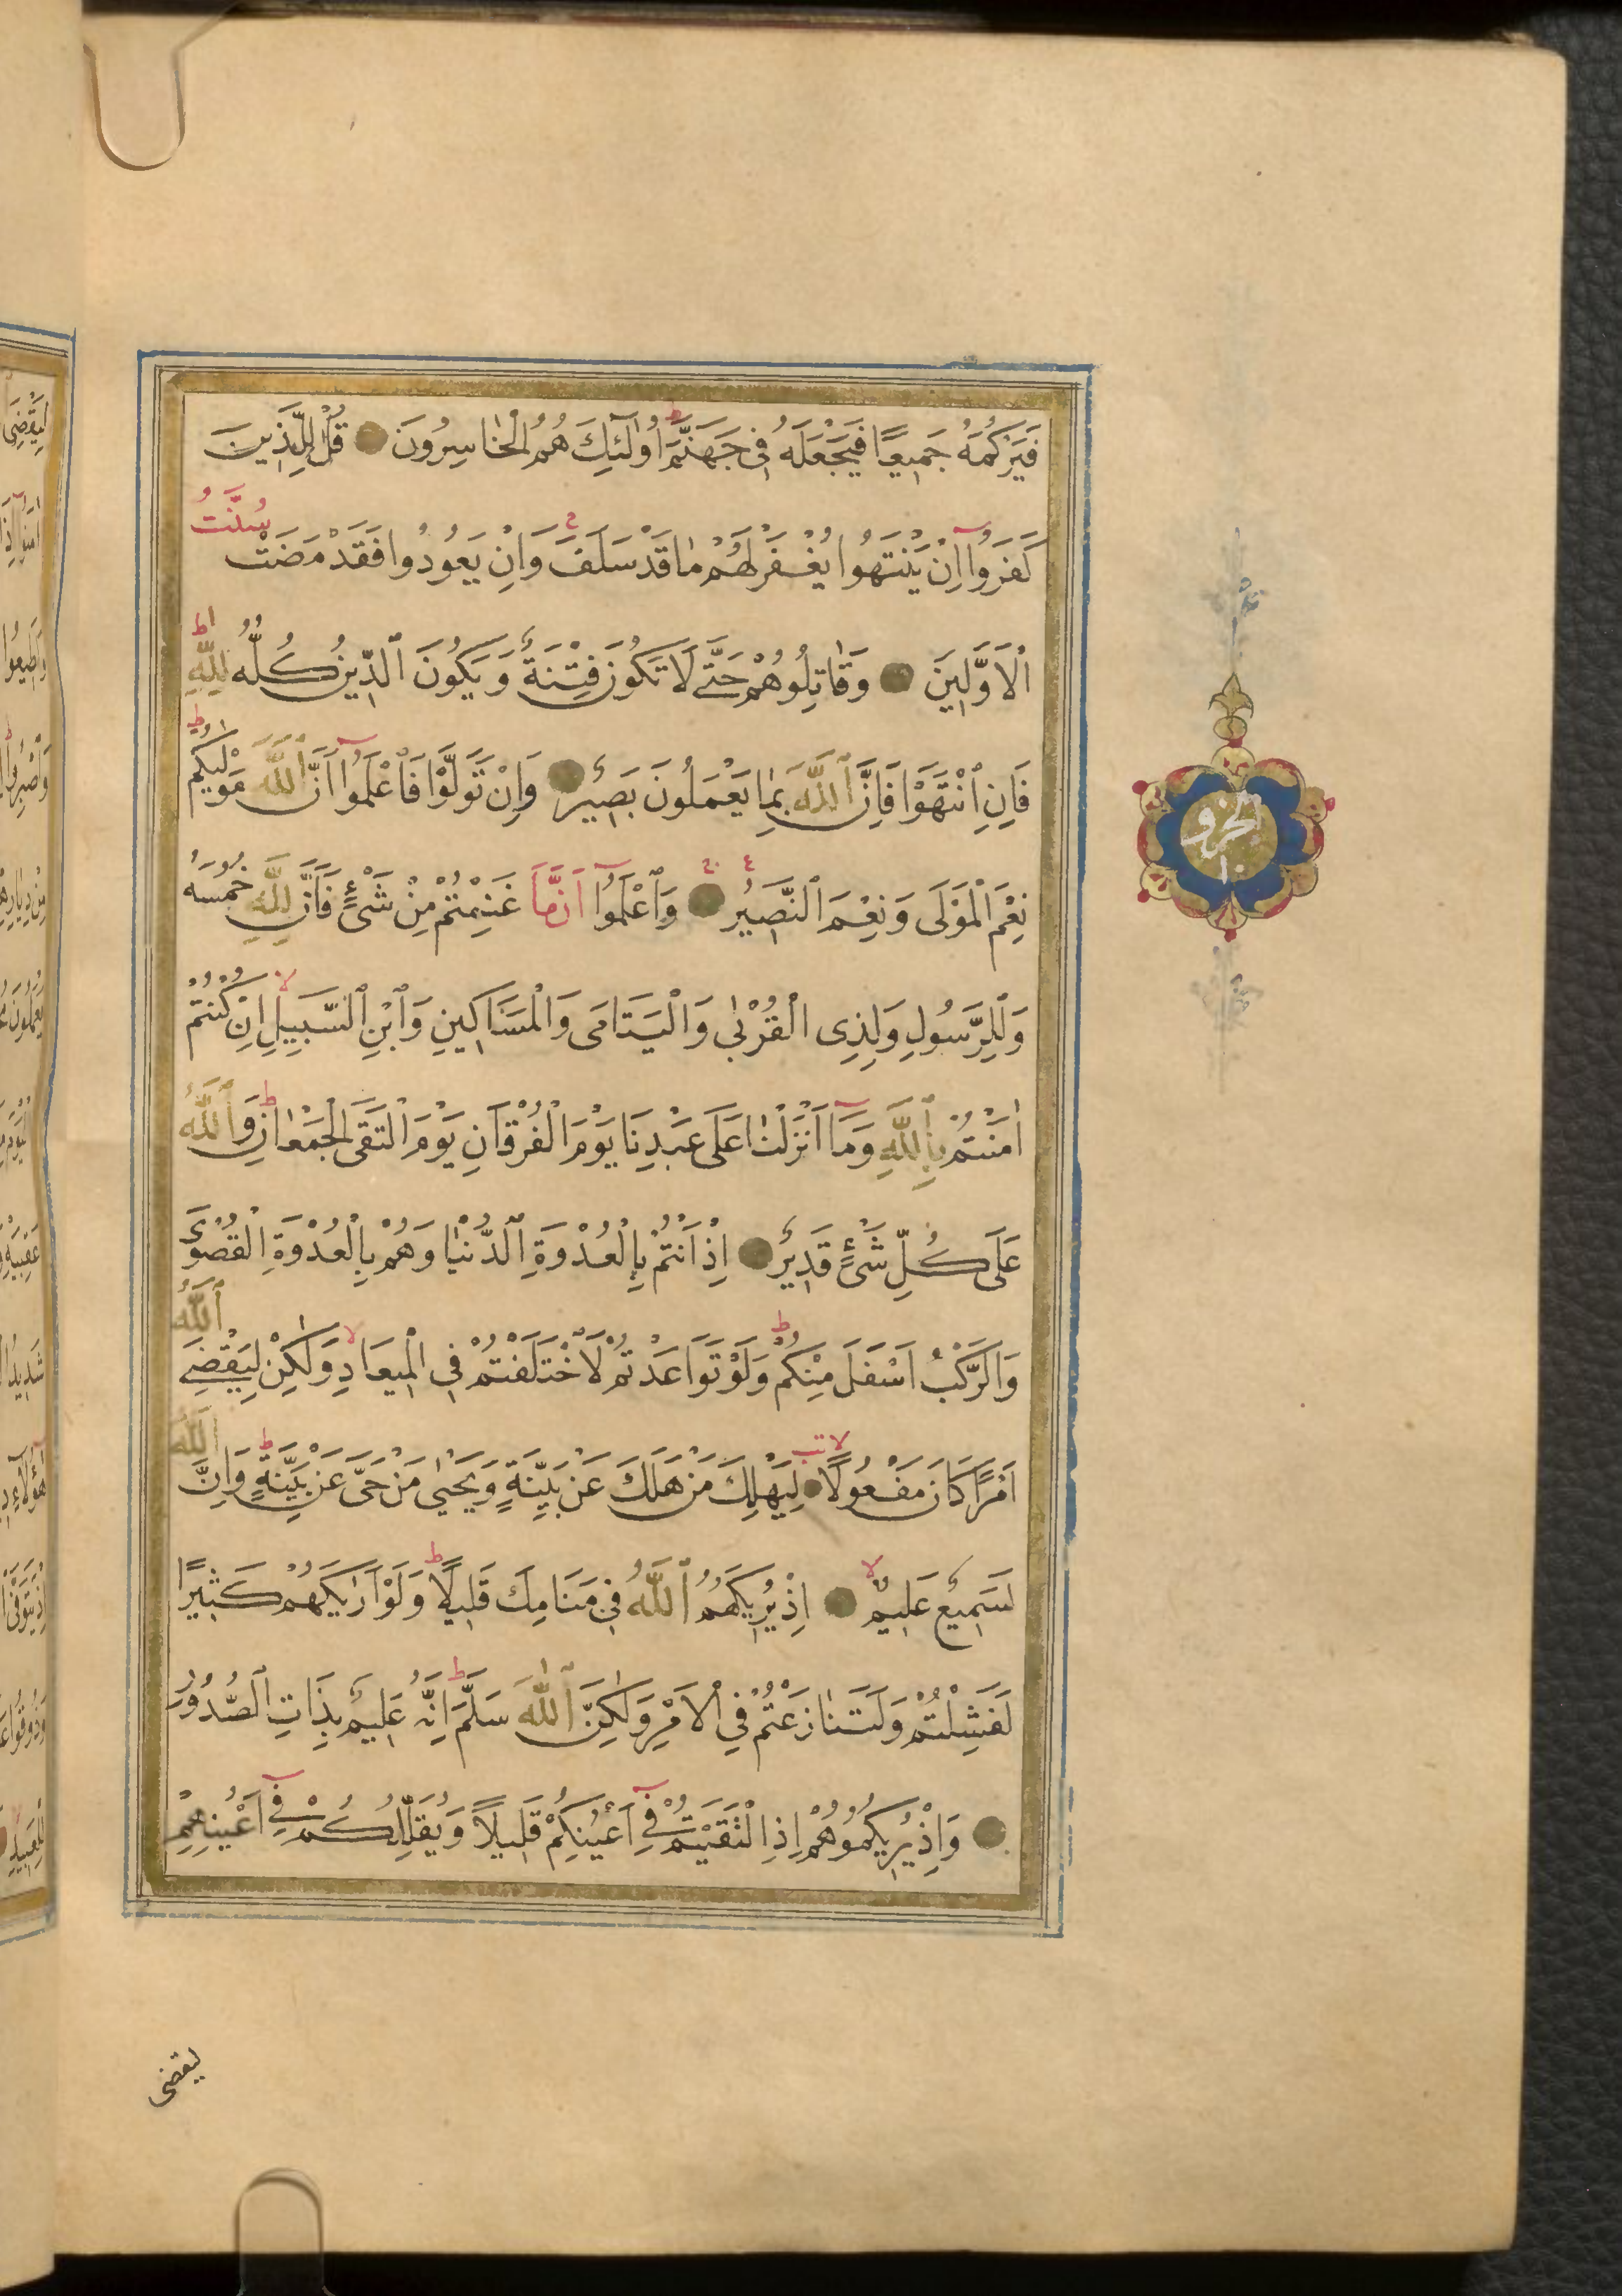 فَيَرْكُمَهُ جَمِيعًا فَيَجْعَلَهُ فِي جَهَنَّمَ ط اُولٰٓئِكَ هُمُ الْخَاسِرُونَ قُلْ لِلَّذِينَ
كَفَرُوٓا اِنْ يَنْتَهُوا يُغْفَرْ لَهُمْ مَا قَدْ سَلَفَ وَاِنْ يَعُودُوا فَقَدْ مَضَتْ سُنَّتُ
الْاَوَّلِينَ وَقَاتِلُوهُمْ حَتّٰى لَا تَكُونَ فِتْنَةٌ وَيَكُونَ الدِّينُ كُلُّهُ لِلّٰهِ ط
فَاِنِ انْتَهَوْا فَاِنَّ اللّٰهَ بِمَا يَعْمَلُونَ بَصِيرٌ وَاِنْ تَوَلَّوْا فَاعْلَمُوٓا اَنَّ اللّٰهَ مَوْلٰيكُمْ ط
نِعْمَ الْمَوْلَى وَنِعْمَ النَّصِيرُ وَاعْلَمُوٓا اَنَّمَا غَنِمْتُمْ مِنْ شَيْءٍ فَاَنَّ لِلّٰهِ خُمُسَهُ
وَلِلرَّسُولِ وَلِذِي الْقُرْبٰى وَالْيَتَامَى وَالْمَسَاكِينِ وَابْنِ السَّبِيلِ لا اِنْ كُنْتُمْ
اٰمَنْتُمْ بِاللّٰهِ وَمَآ اَنْزَلْنَا عَلَى عَبْدِنَا يَوْمَ الْفُرْقَانِ يَوْمَ الْتَقَى الْجَمْعَانِ ط وَاللّٰهُ
عَلَى كُلِّ شَيْءٍ قَدِيرٌ اِذْ اَنْتُمْ بِالْعُدْوَةِ الدُّنْيَا وَهُمْ بِالْعُدْوَةِ الْقُصْوَى
وَالرَّكْبُ اَسْفَلَ مِنْكُمْ ط وَلَوْ تَوَاعَدْتُمْ لَاخْتَلَفْتُمْ فِي الْمِيعَادِ لا وَلٰكِنْ لِيَقْضِيَ اللّٰهُ
اَمْرًا كَانَ مَفْعُولًا لا لِيَهْلِكَ مَنْ هَلَكَ عَنْ بَيِّنَةٍ وَيَحْيٰى مَنْ حَيَّ عَنْ بَيِّنَةٍ ط وَاِنَّ اللّٰهَ
لَسَمِيعٌ عَلِيمٌ لا اِذْ يُرِيكَهُمُ اللّٰهُ فِي مَنَامِكَ قَلِيلًا ط وَلَوْ اَرٰيكَهُمْ كَثِيرًا
لَفَشِلْتُمْ وَلَتَنَازَعْتُمْ فِي الْاَمْرِ وَلٰكِنَّ اللّٰهَ سَلَّمَ ط اِنَّهُ عَلِيمٌ بِذَاتِ الصُّدُورِ
وَاِذْ يُرِيكُمُوهُمْ اِذِ الْتَقَيْتُمْ فِٓي اَعْيُنِكُمْ قَلِيلًا وَيُقَلِّلُكُمْ فِٓي اَعْيُنِهِمْ
ليقضى